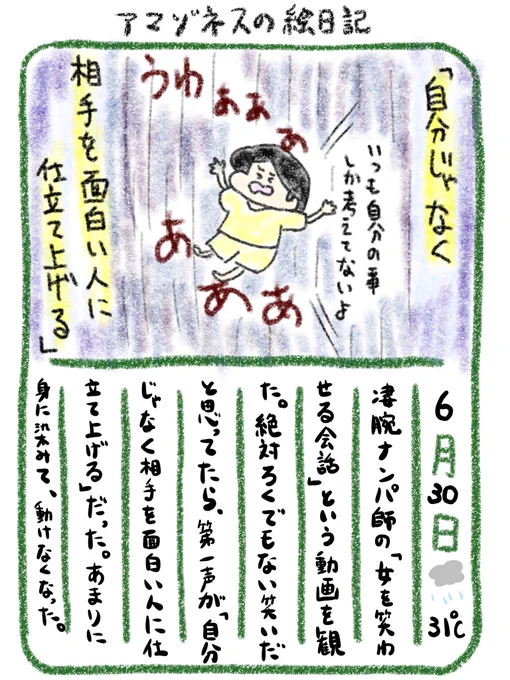 アマゾネスの絵日記
「自分じゃなく
相手を面白い人に
仕立て上げる」
いつも自分の事
しか考えてないよ
うわぁぁぁ
あああ
6月30日 31℃
凄腕ナンパ師の「女を笑わ
せる会話」という動画を観
た。絶対ろくでもない笑いだ
と思ってたら、第一声が「自分
じゃなく相手を面白い人に仕
立て上げる」だった。あまりに
身に染みて、動けなくなった。